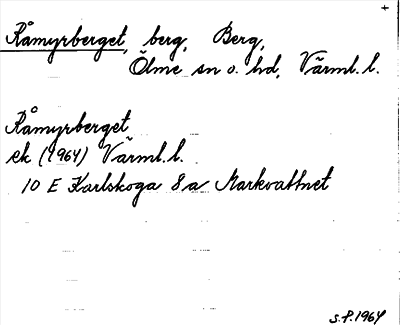 +
Råmyrberget, berg, Berg,
Ölme sn o. hd, Värml. l.
Råmyrberget
ek (1964) Värml. l.
10 E Karlskoga 8a Markvattnet
S.F. 1964